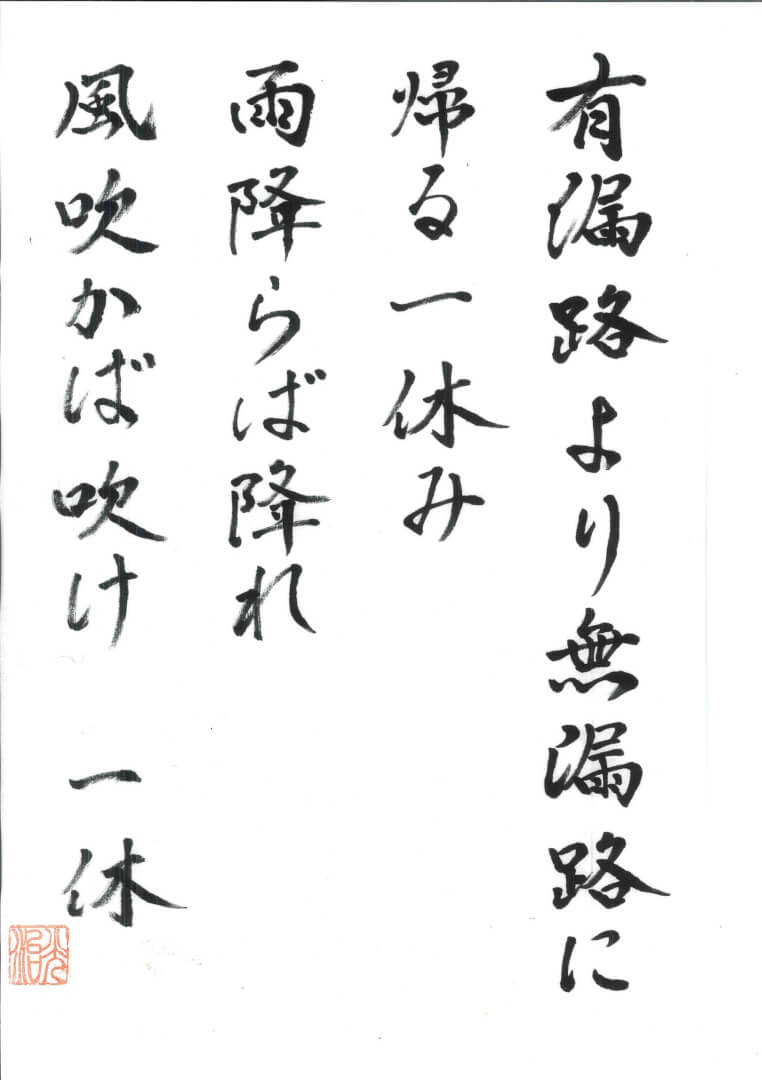 有漏路より無漏路に
帰る一休み
雨降らば降れ
風吹かば吹け　一休